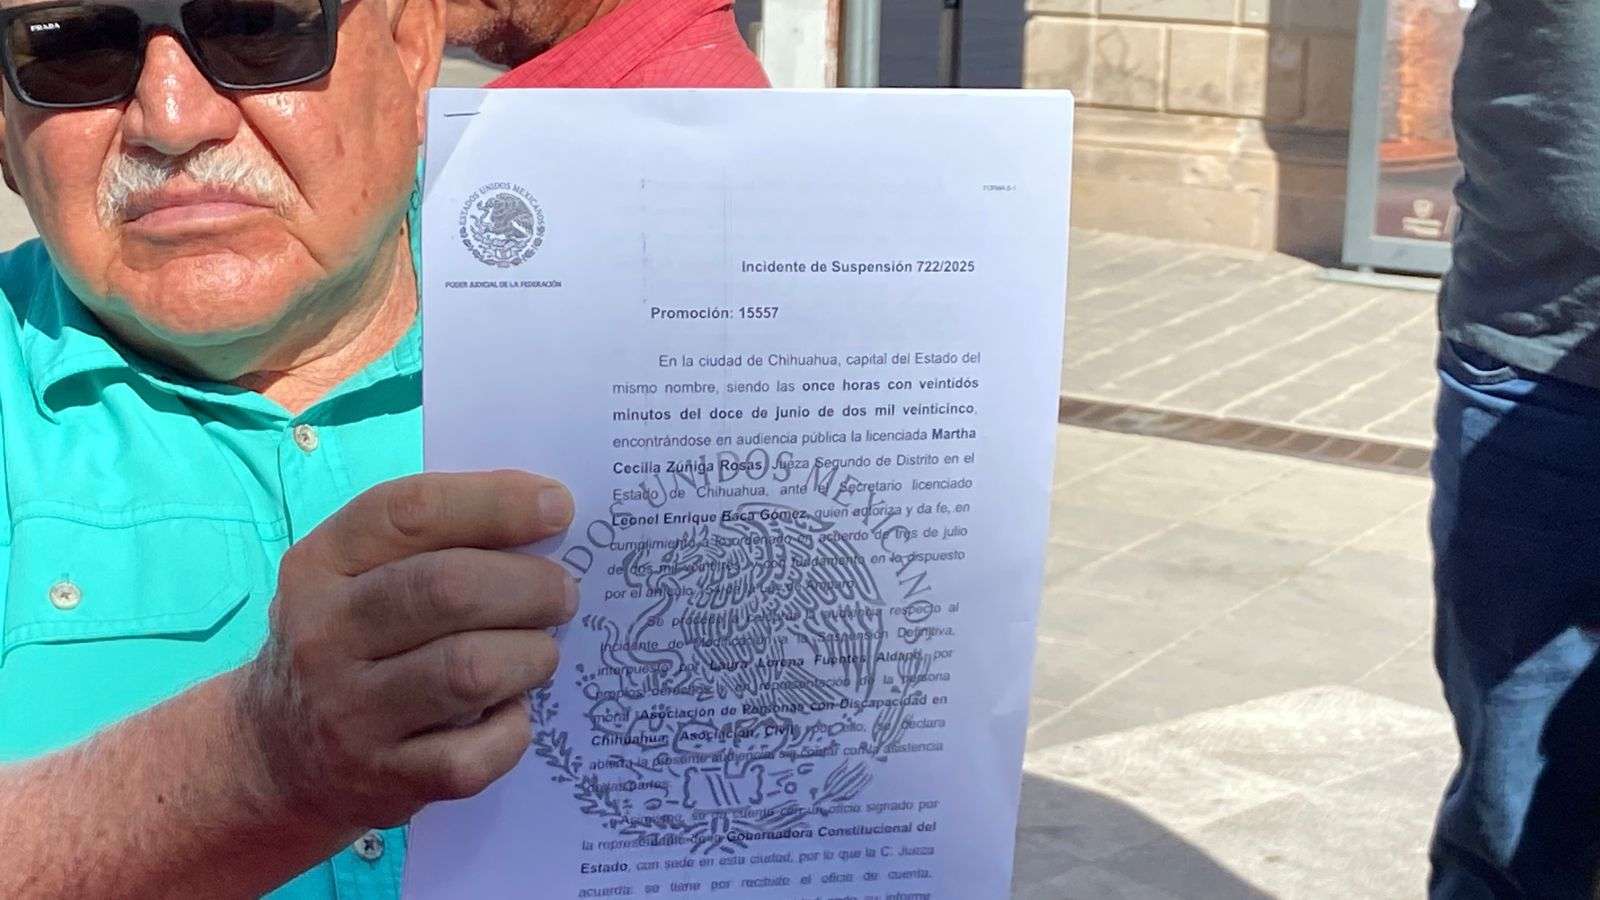 PRADA
ESTADOS UNIDOS MEXICANOS
PODER JUDICIAL DE LA FEDERACIÓN
FORMA B-1
Incidente de Suspensión 722/2025
Promoción: 15557
En la ciudad de Chihuahua, capital del Estado del
mismo nombre, siendo las once horas con veintidós
minutos del doce de junio de dos mil veinticinco,
encontrándose en audiencia pública la licenciada Martha
Cecilia Zúñiga Rosas, Jueza Segundo de Distrito en el
Estado de Chihuahua, ante el Secretario licenciado
Leonel Enrique Baca Gómez, quien autoriza y da fe, en
cumplimiento a lo ordenado en acuerdo de tres de julio
de dos mil veintitrés, y con fundamento en lo dispuesto
por el artículo 154 de la Ley de Amparo.
Se procede a celebrar la audiencia respecto al
Incidente de Modificación a la Suspensión Definitiva,
interpuesto por Laura Lorena Fuentes Aldape, por
propios derechos y en representación de la persona
moral Asociación de Personas con Discapacidad en
Chihuahua, Asociación Civil, por ello, se declara
abierta la presente audiencia, sin contar con la asistencia
de las partes.
Asimismo, se da cuenta con un oficio signado por
la representante de la Gobernadora Constitucional del
Estado, con sede en esta ciudad, por lo que la C. Jueza
acuerda: se tiene por recibido el oficio de cuenta,
su informe
ESTADOS UNIDOS MEXICANOS